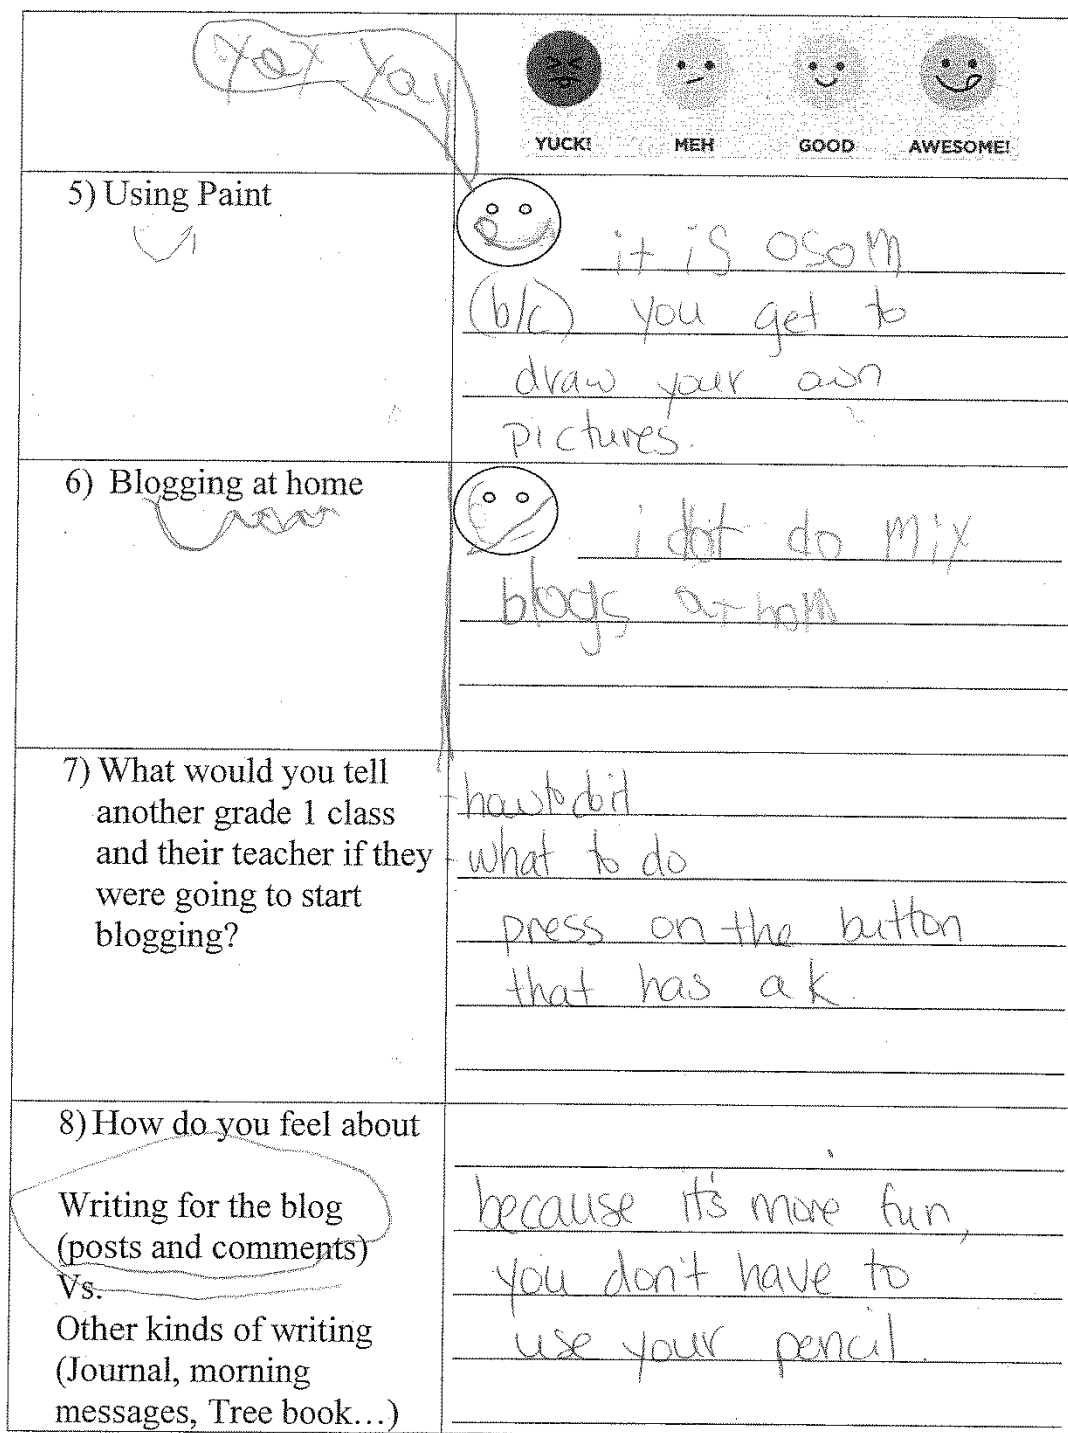 Yay Yay
YUCK! MEH GOOD AWESOME!
5) Using Paint
it is osom
(b/c) you get to
draw your own
pictures.
6) Blogging at home
i dot do mix
blogs at hom
7) What would you tell
another grade 1 class
and their teacher if they
were going to start
blogging?
- how to do it
- what to do
press on the button
that has a k.
8) How do you feel about
Writing for the blog
(posts and comments)
Vs.
Other kinds of writing
(Journal, morning
messages, Tree book…)
because it's more fun,
you don't have to
use your pencil.